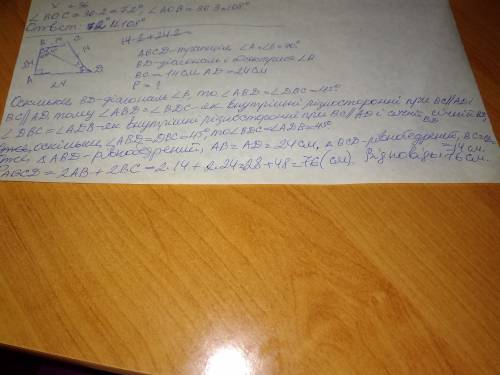 x = 36
∠BOC = 36·2 = 72°, ∠AOB = 36·3 = 108°
Ответ: 72° і 108°
14·2+24·2
B 14 C
24 14
A 24 D
ABCD - трапеція ∠A=∠B=90°
BD - діагональ і бісектриса ∠B
BC = 14 см AD = 24 см
P = ?
Оскільки BD - діагональ ∠B, то ∠ABD = ∠DBC = 45°
BC||AD, тому ∠ABD = ∠BDC - як внутрішні різносторонні при BC||AD і січній BD,
∠DBC = ∠ADB - як внутрішні різносторонні при BC||AD і січній BD
оскільки ∠ABD = DBC = 45°, то ∠BDC = ∠ADB = 45°
△ABD - рівнобедрений, AB = AD = 24 см, △BCD - рівнобедрений, BC = = 14 см.
ABCD = 2AB + 2BC = 2·14 + 2·24 = 28 + 48 = 76 (см). Відповідь: 76 см.